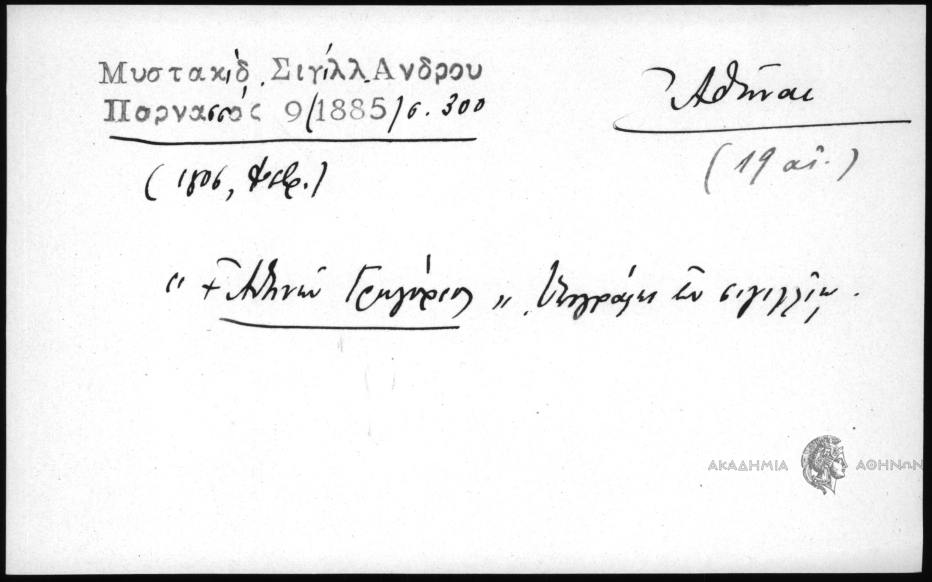 Μυστακιδ. Σιγίλλ. Ανδρου
Παρνασσός 9/(1885) σ. 300
Ἀθῆναι
(19 αἰ.)
(1805, Φεβρ.)
"+ Ἀθηνῶν Γρηγόριος" ὑπογράφει ἐν σιγιλλίῳ.
ΑΚΑΔΗΜΙΑ ΑΘΗΝΩΝ